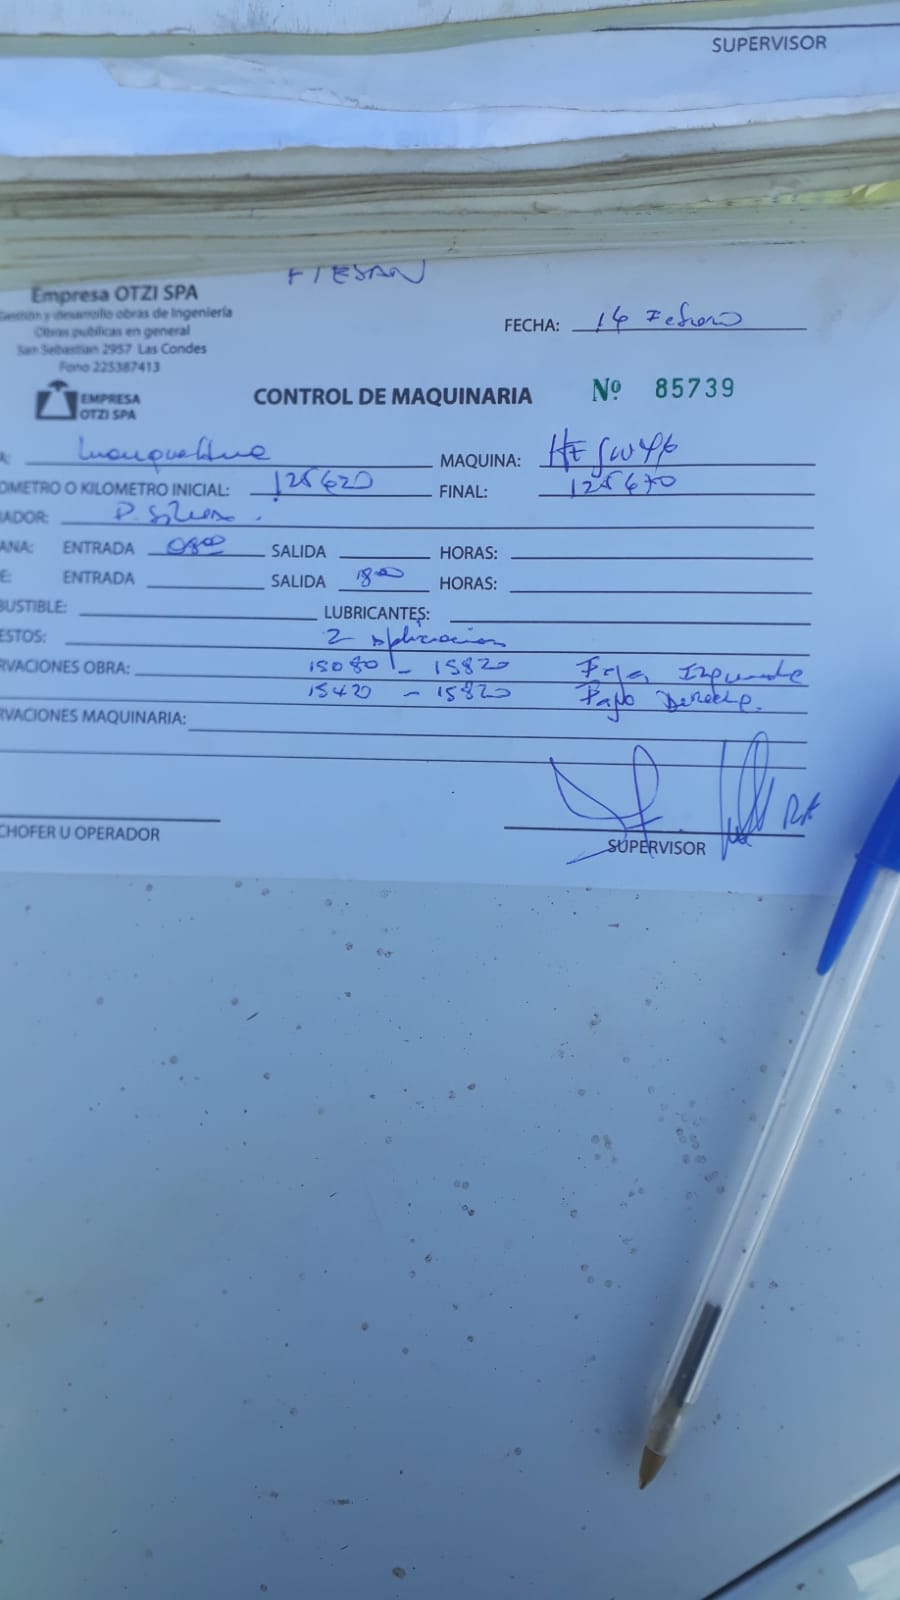 SUPERVISOR
FTESAN
Empresa OTZI SPA
Gestión y desarrollo obras de Ingeniería
Obras publicas en general
San Sebastian 2957 Las Condes
Fono 225387413
EMPRESA
OTZI SPA
FECHA: 14 Febrero
CONTROL DE MAQUINARIA Nº 85739
MAQUINA:
OMETRO O KILOMETRO INICIAL: 125420 FINAL: 125470
ADOR: P. Silva.
ANA: ENTRADA 0800 SALIDA HORAS:
E: ENTRADA SALIDA 1800 HORAS:
BUSTIBLE: LUBRICANTES:
ESTOS: 2 aplicacion
RVACIONES OBRA: 15080 - 15820 Faja Izquierda
15420 - 15820 Derecho.
RVACIONES MAQUINARIA:
CHOFER U OPERADOR
SUPERVISOR